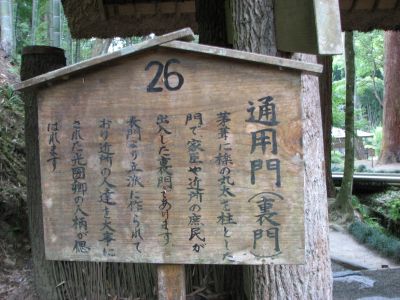 26
通用門(裏門)
茅葺に椽の丸太を柱とした
門で家臣や近所の庶民が
出入した裏門であります
表門より立派に作られて
おり近所の人達を大事に
された光圀卿の人柄が偲
ばれます